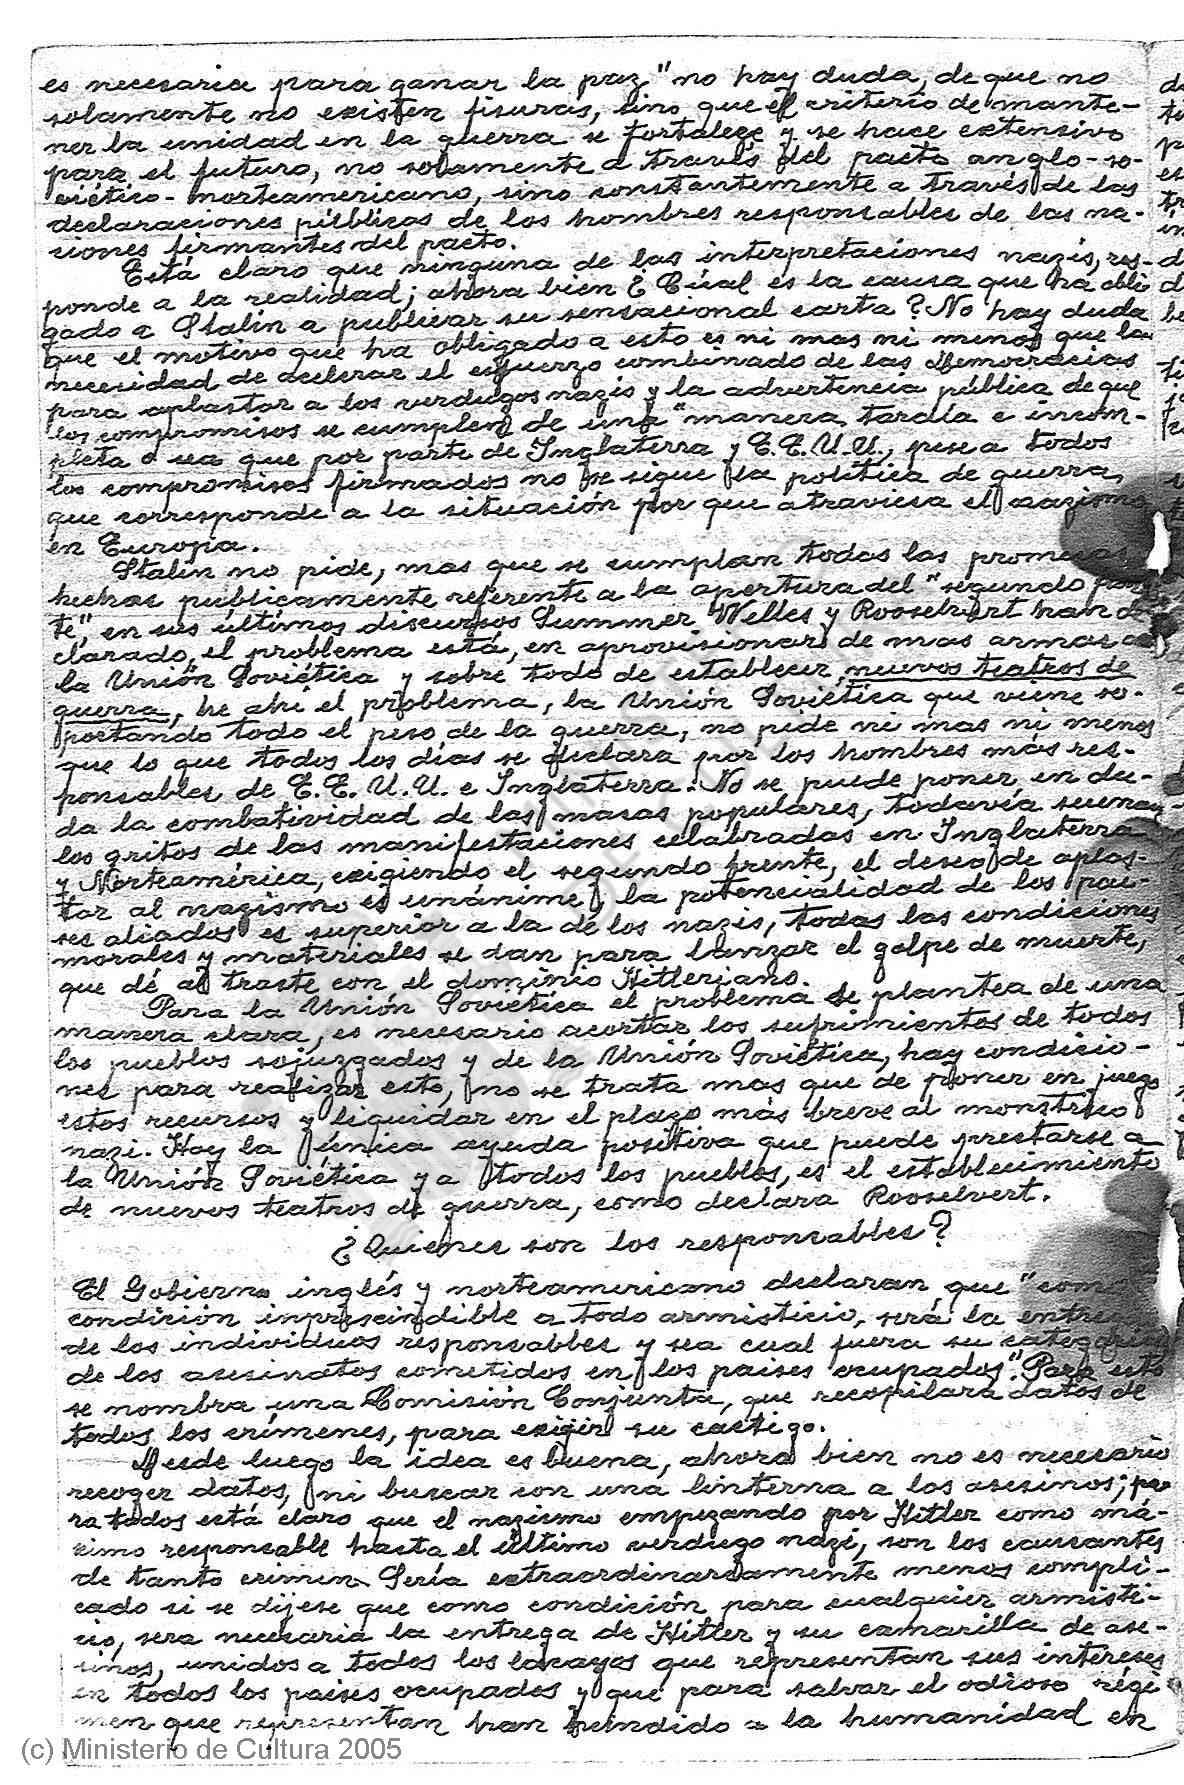 es necesaria para ganar la paz" no hay duda, de que no
solamente no existen fisuras, sino que el criterio de mante-
ner la unidad en la guerra se fortalece y se hace extensivo
para el futuro, no solamente a través del pacto anglo-so-
viético-norteamericano, sino constantemente a través de las
declaraciones públicas de los hombres responsables de las na-
ciones firmantes del pacto.
Está claro que ninguna de las interpretaciones nazis, res-
ponde a la realidad; ahora bien ¿Cúal es la causa que ha obli-
gado a Stalin a publicar su sensacional carta? No hay duda
que el motivo que ha obligado a esto es ni mas ni menos que la
necesidad de acelerar el esfuerzo combinado de las Democracias
para aplastar a los verdugos nazis y la advertencia pública de que
los compromisos se cumplen de una "manera tardia e incom-
pleta o sea que por parte de Inglaterra y E.E.U.U., pese a todos
los compromisos firmados no se sigue la política de guerra,
que corresponde a la situación por que atraviesa el nazismo
en Europa.
Stalin no pide, mas que se cumplan todas las promesas
hechas publicamente referente a la apertura del "segundo fren-
te", en sus últimos discursos Summer Welles y Rooselvert han de-
clarado, el problema está, en aprovisionar de mas armas a
la Unión Soviética y sobre todo de establecer nuevos teatros de
guerra, he ahí el problema, la Unión Soviética que viene so-
portando todo el peso de la guerra, no pide ni mas ni menos
que lo que todos los días se declara por los hombres más res-
ponsables de E.E.U.U. e Inglaterra. No se puede poner en du-
da la combatividad de las masas populares, todavía suenan
los gritos de las manifestaciones celabradas en Inglaterra
y Norteamérica, exigiendo el segundo frente, el deseo de aplas-
tar al nazismo es unánime, la potencialidad de los pai-
ses aliados es superior a la de los nazis, todas las condiciones
morales y materiales se dan para lanzar el golpe de muerte,
que dé al traste con el dominio Hitleriano.
Para la Unión Soviética el problema se plantea de una
manera clara, es necesario acortar los sufrimientos de todos
los pueblos sojuzgados y de la Unión Soviética, hay condicio-
nes para realizar esto, no se trata mas que de poner en juego
estos recursos y liquidar en el plazo más breve al monstruo
nazi. Hoy la única ayuda positiva que puede prestarse a
la Unión Soviética y a todos los pueblos, es el establecimiento
de nuevos teatros de guerra, como declara Rooselvert.
¿Quienes son los responsables?
El Gobierno inglés y norteamericano declaran que "como
condición inprescindible a todo armisticio, será la entrega
de los individuos responsables y sea cual fuera su categoría
de los asesinatos cometidos en los paises ocupados". Para esto
se nombra una Comisión Conjunta, que recopilara datos de
todos los crímenes, para exigir su castigo.
Desde luego la idea es buena, ahora bien no es necesario
recoger datos, ni buscar con una linterna a los asesinos; pa-
ra todos está claro que el nazismo empezando por Hitler como má-
ximo responsable hasta el último verdugo nazi, son los causantes
de tanto crimen. Sería extraordinariamente menos compli-
cado si se dijese que como condición para cualquier armisti-
cio, sera necesaria la entrega de Hitler y su camarilla de ase-
sinos, unidos a todos los lacayos que representan sus intereses
en todos los paises ocupados y que para salvar el odioso régi-
men que representan han hundido a la humanidad en
(c) Ministerio de Cultura 2005